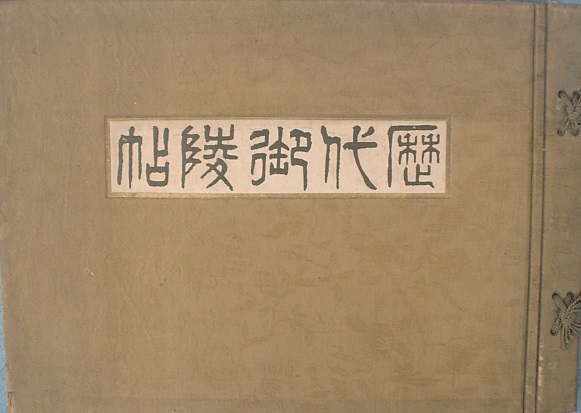 歴代御陵帖